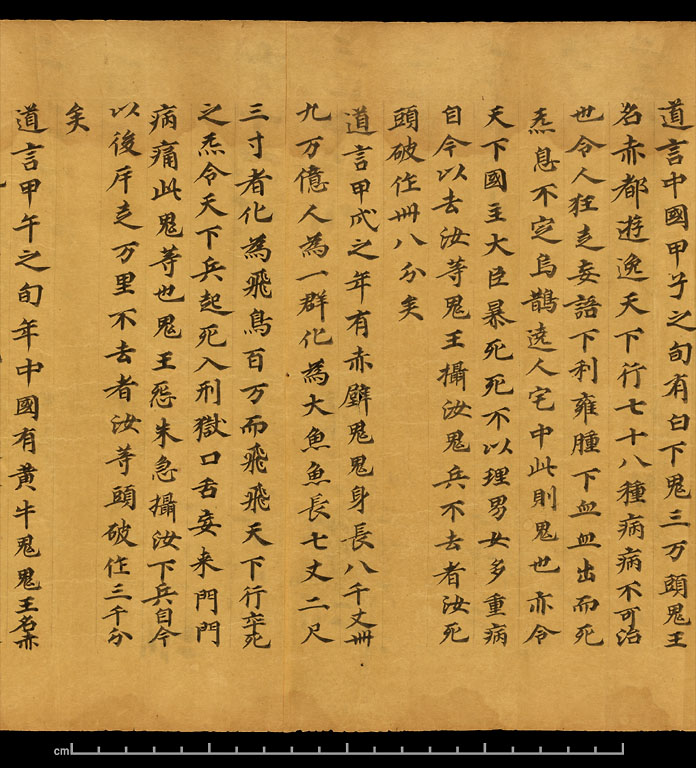 道言中國甲子之旬有白下鬼三万頭鬼王
名赤都遊逸天下行七十八種病病不可治
也令人狂走妄語下利雍腫下血血出而死
炁息不定烏鵲遶人宅中此則鬼也亦令
天下國主大臣暴死死不以理男女多重病
自今以去汝等鬼王攝汝鬼兵不去者汝死
頭破作卌八分矣
道言甲戌之年有赤壁鬼鬼身長八千丈卌
九万億人為一群化為大魚魚長七丈二尺
三寸者化為飛鳥百万而飛飛天下行卒死
之炁令天下兵起死入刑獄口舌妄来門門
病痛此鬼等也鬼王惡朱急攝汝下兵自今
以後斥走万里不去者汝等頭破作三千分
矣
道言甲午之旬年中國有黄牛鬼鬼王名赤